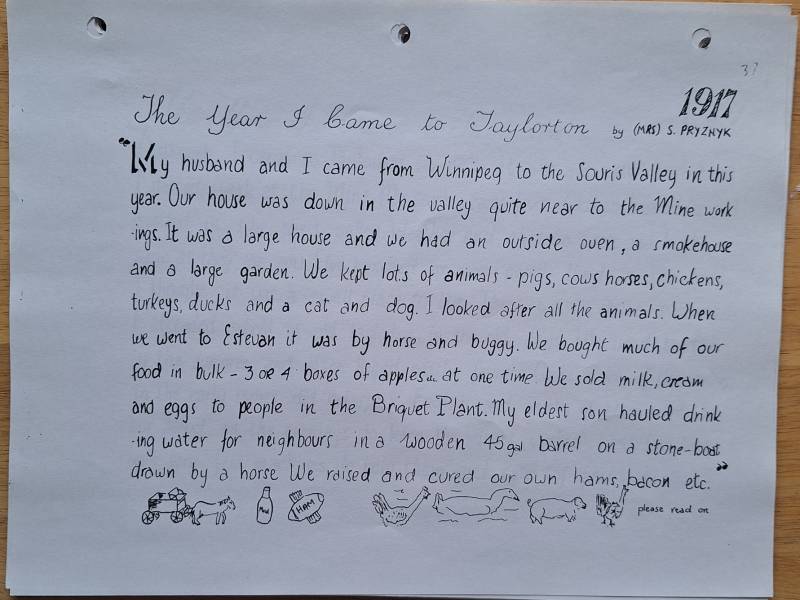 37
1917
The Year I Came to Taylorton by (MRS) S. PRYZNYK
"My husband and I came from Winnipeg to the Souris Valley in this
year. Our house was down in the valley quite near to the Mine work
-ings. It was a large house and we had an outside oven, a smokehouse
and a large garden. We kept lots of animals - pigs, cows horses, chickens,
turkeys, ducks and a cat and dog. I looked after all the animals. When
we went to Estevan it was by horse and buggy. We bought much of our
food in bulk - 3 or 4 boxes of apples... at one time We sold milk, cream
and eggs to people in the Briquet Plant. My eldest son hauled drink
-ing water for neighbours in a wooden 45 gal barrel on a stone-boat
drawn by a horse We raised and cured our own hams, bacon etc."
HAM
please read on